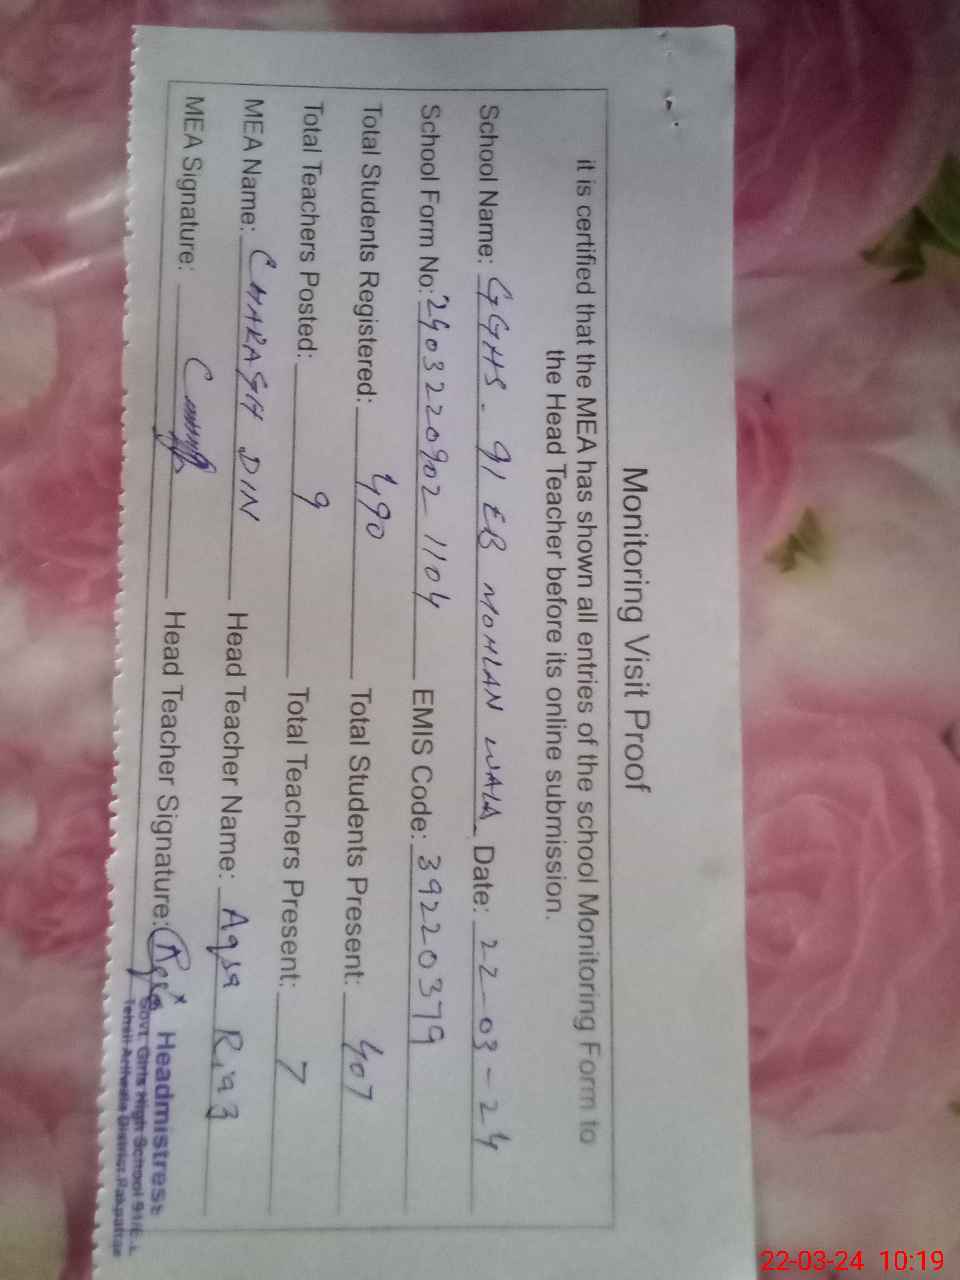 Monitoring Visit Proof
it is certified that the MEA has shown all entries of the school Monitoring Form to
the Head Teacher before its online submission.
School Name: GGHS. 91 EB MOHLAN WALA Date: 22-03-24
School Form No: 2403220902 1104 EMIS Code: 39220379
Total Students Registered: 490 Total Students Present: 407
Total Teachers Posted: 9 Total Teachers Present: 7
MEA Name: CHARAGH DIN Head Teacher Name: Aqsa Riaz
MEA Signature: Head Teacher Signature: Aqsa
Headmistress
Govt. Girls High School 91/E.B
Tehsil Arifwala District Pakpattan
22-03-24 10:19